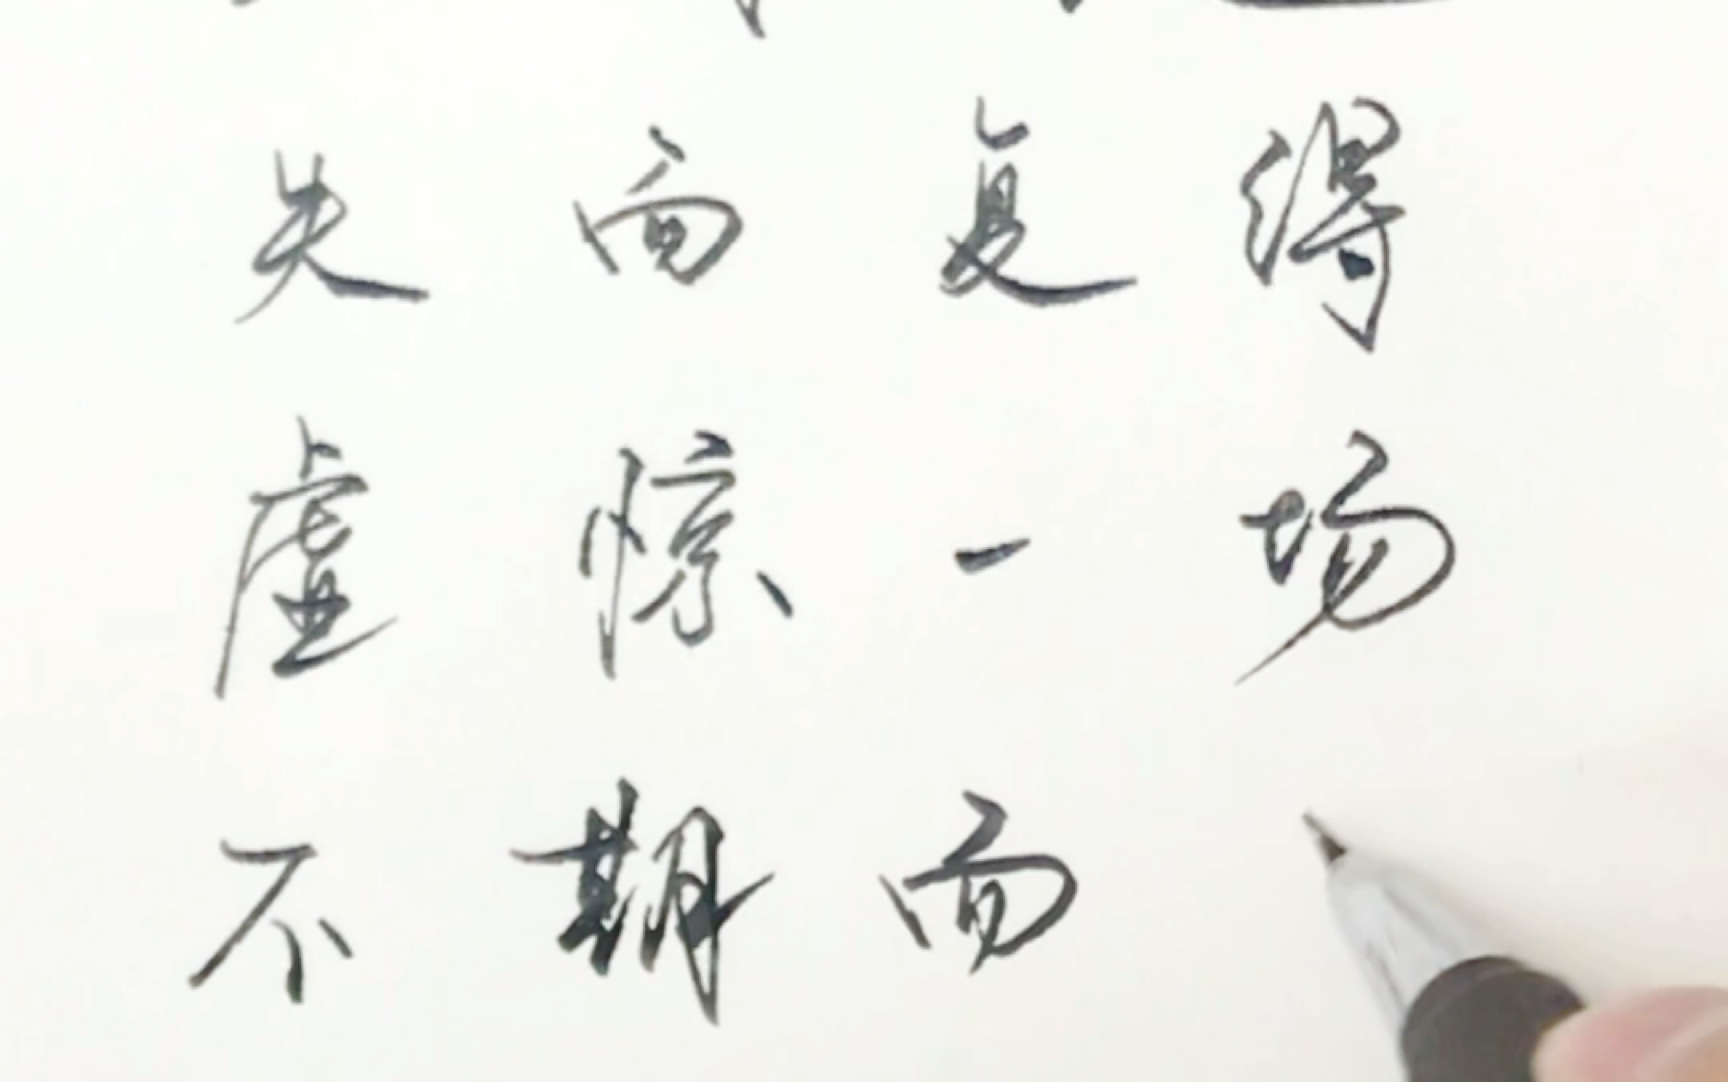 失而复得
虚惊一场
不期而